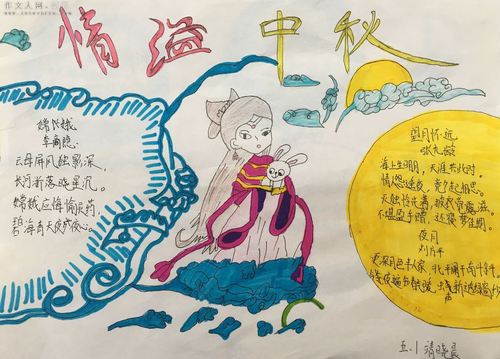 作文人网
情溢中秋
嫦娥
李商隐
云母屏风烛影深,
长河渐落晓星沉。
嫦娥应悔偷灵药,
碧海青天夜夜心。
望月怀远
张九龄
海上生明月,天涯共此时。
情人怨遥夜,竟夕起相思。
灭烛怜光满,披衣觉露滋。
不堪盈手赠,还寝梦佳期。
夜月
刘方平
更深月色半人家,北斗阑干南斗斜,
今夜偏知春气暖,虫声新透绿窗纱
五.1 靖晓晨